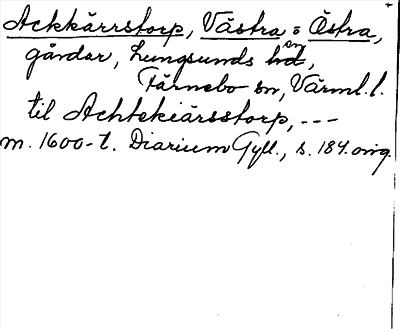 Ackkärrstorp, Västra o Östra,
gårdar, Lungsunds sn,
Färnebo sn, Värml. l.
til Achtekiärsstorp, ---
m. 1600-t. Diarium Gyll., s. 184. orig.